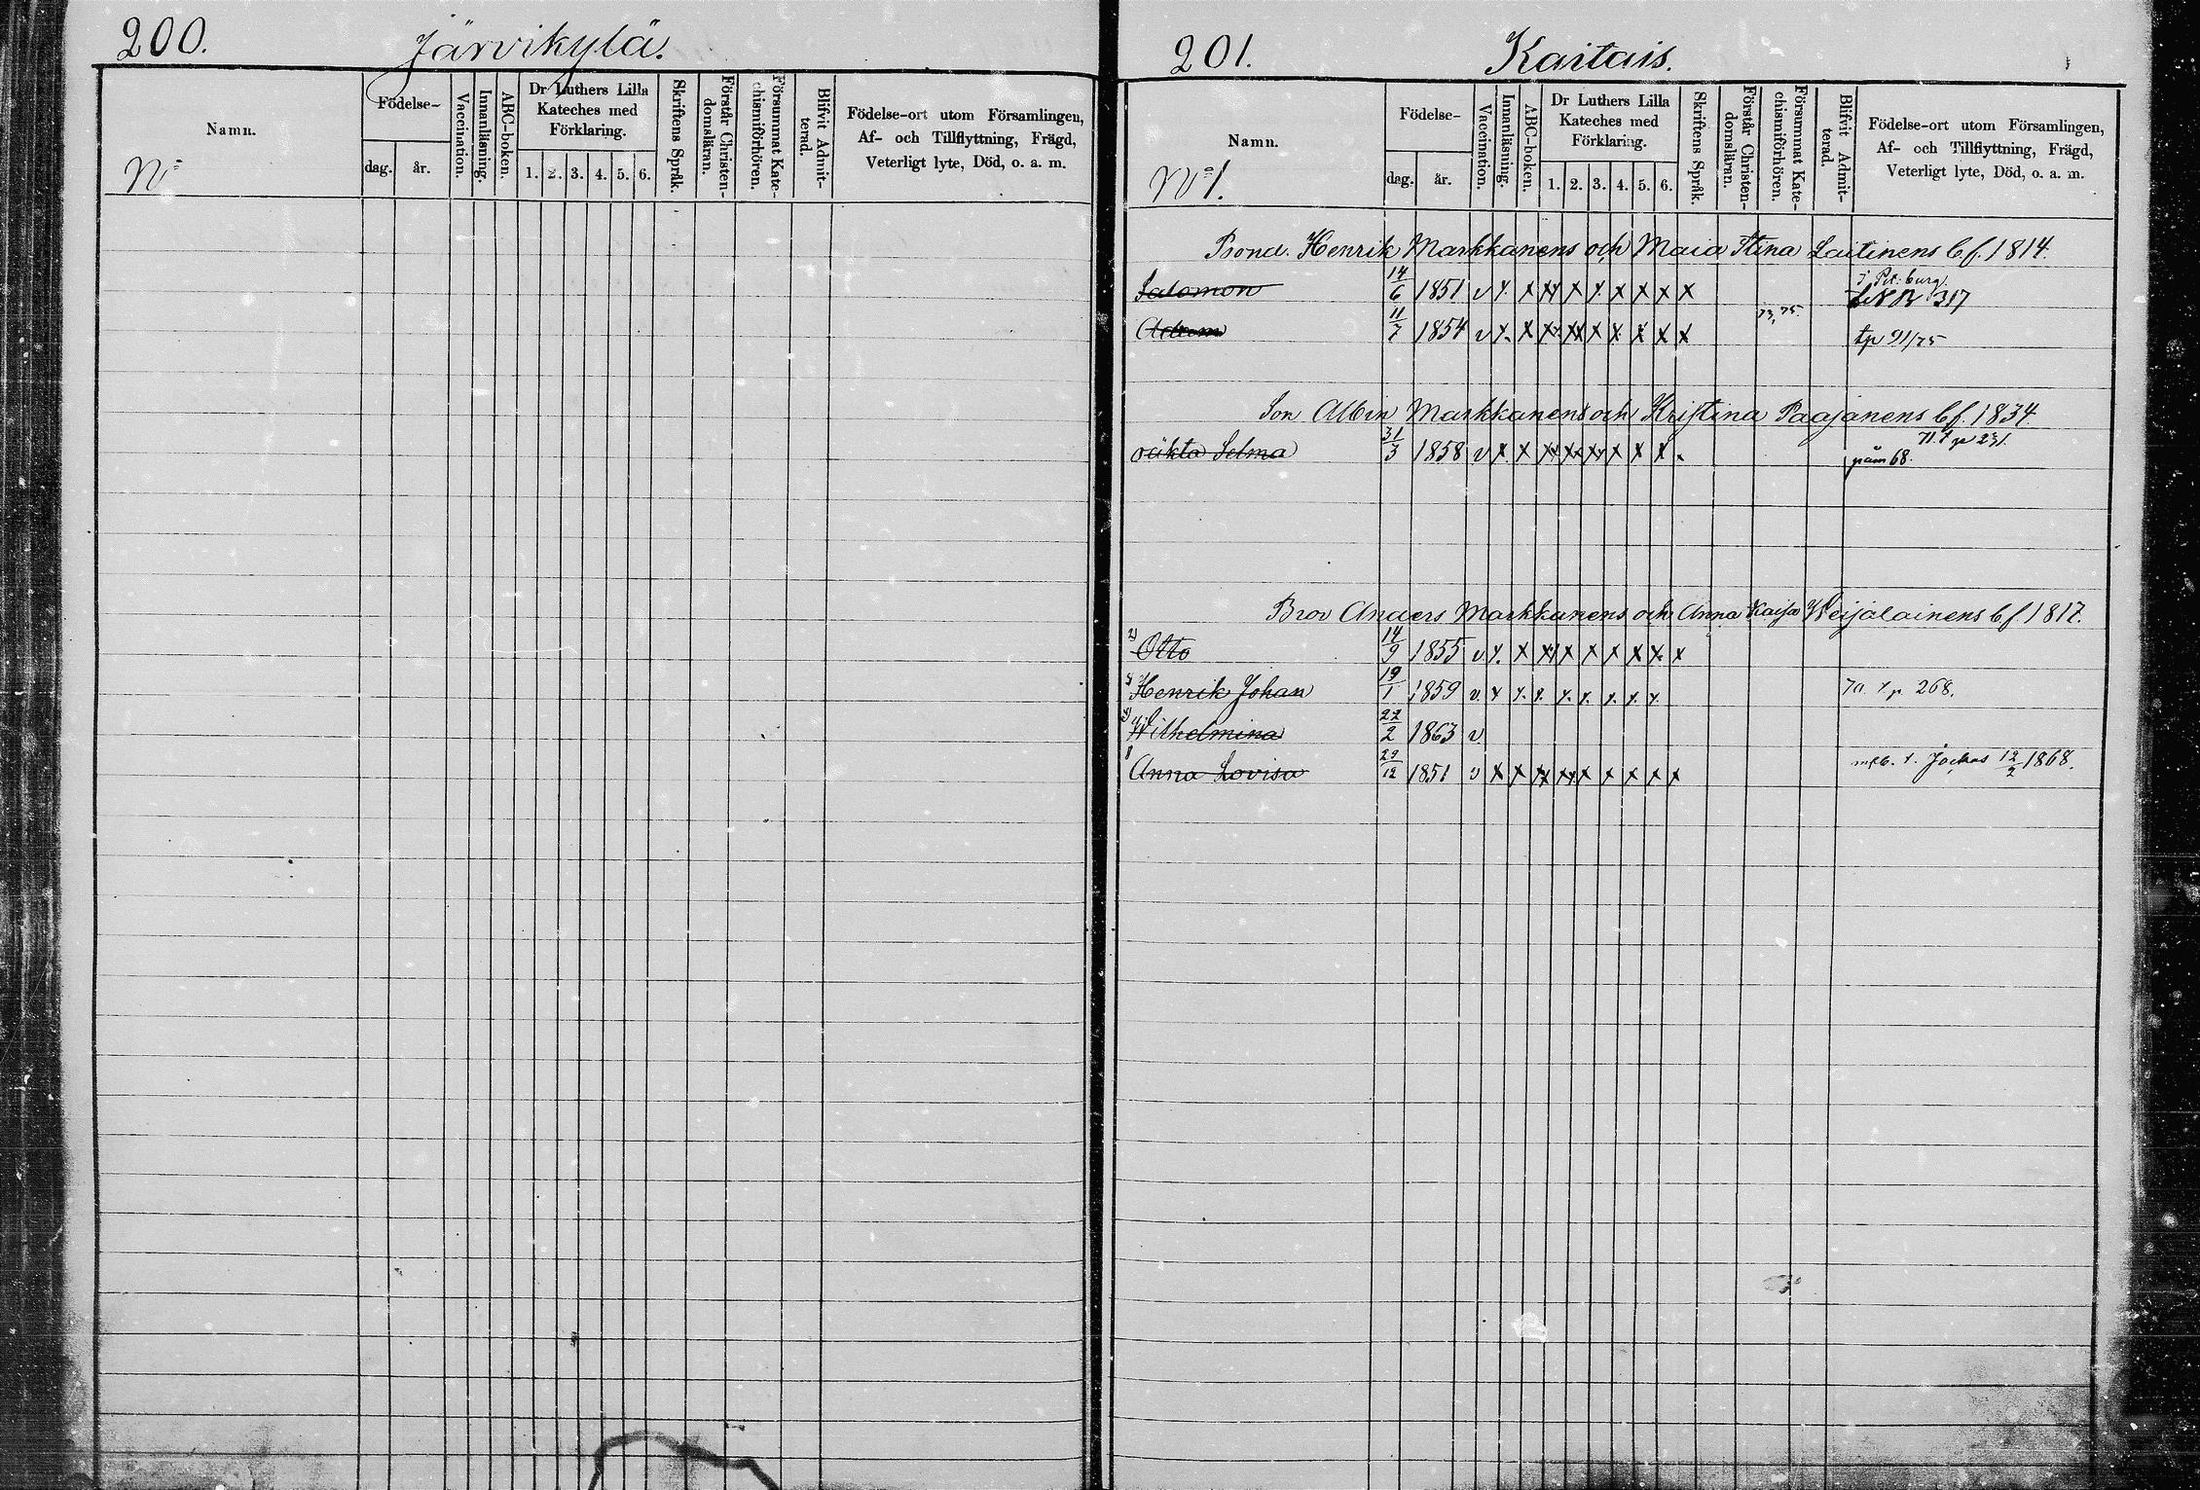 200.
Järvikylä.
Namn.
Nº
Födelse-
dag.
år.
Vaccination.
Innanläsning.
ABC-boken.
Dr Luthers Lilla
Kateches med
Förklaring.
1. 2. 3. 4. 5. 6.
Skriftens Språk.
Förstår Christen-
domsläran.
Försummat Kate-
chismiförhören.
Blifvit Admit-
terad.
Födelse-ort utom Församlingen,
Af- och Tillflyttning, Frägd,
Veterligt lyte, Död, o. a. m.
201.
Kaitais.
Namn.
Nº 1.
Födelse-
dag.
år.
Vaccination.
Innanläsning.
ABC-boken.
Dr Luthers Lilla
Kateches med
Förklaring.
1. 2. 3. 4. 5. 6.
Skriftens Språk.
Förstår Christen-
domsläran.
Försummat Kate-
chismiförhören.
Blifvit Admit-
terad.
Födelse-ort utom Församlingen,
Af- och Tillflyttning, Frägd,
Veterligt lyte, Död, o. a. m.
Bond. Henrik Markkanens och Maia Stina Laitinens b.f. 1814.
i Pet.burg.
Salomon 14/6 1851 v x x x x x x x x x 317
73, 75.
Adam 11/7 1854 v x x x x x x x x x tp 91/75
Son Albin Markkanens och Kristina Paajanens b.f. 1834
71. t p 231.
oäkta Selma 31/3 1858 v x x x x x x x x 68.
Bror Anders Markkanens och Anna Kaisa Weijalainens b.f. 1817.
2) Otto 14/9 1855 v x x x x x x x x x
3) Henrik Johan 19/1 1859 v x x x x x x x x 70. t p 268.
Wilhelmina 22/2 1863 v.
Anna Lovisa 29/12 1851 v x x x x x x x x x t. Jockas 12/2 1868.